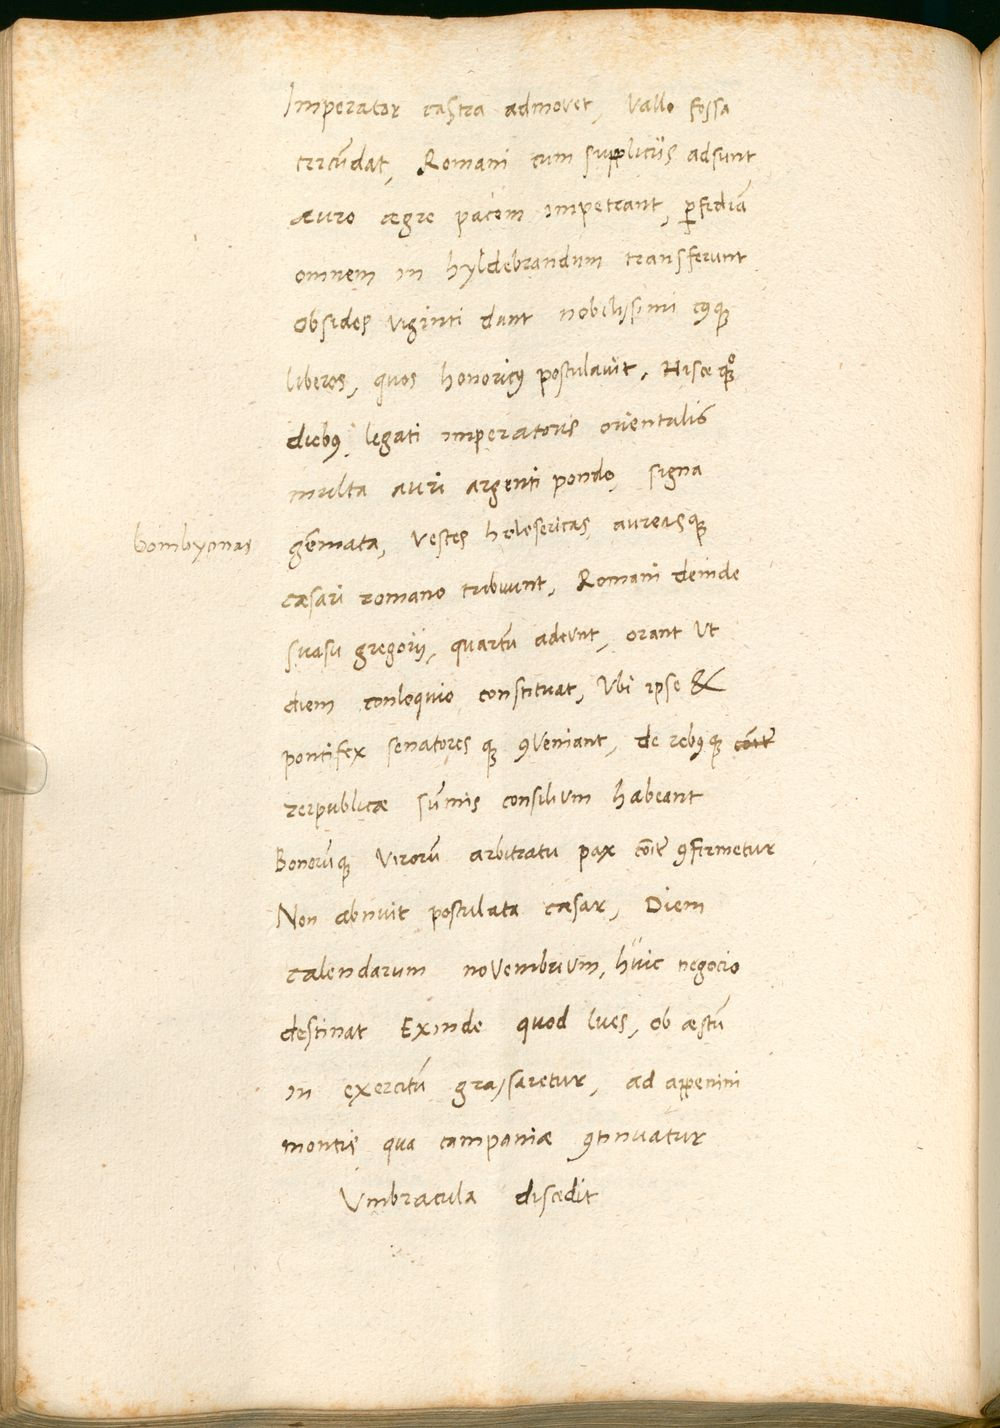 Imperator castra admovet, Vallo fossa
circūdat, Romani cum suppliciis adsunt
auro ægre pacem impetrant, ꝑfidiā
omnem in hyldebrandum transferunt
Obsides viginti dant nobilissimi cuiꝰqꝫ
liberos, quos honoricꝰ postulavit. Hisce qꝫ
diebꝰ legati imperatoris orientalis
multa auri argenti pondo, signa
bombycinas
gēmata, Vestes holosericas, aureasqꝫ
cæsari romano tribuunt, Romani deinde
suasu gregorij, quartū adeunt, orant Ut
diem conloquio constituat, Vbi ipse &
pontifex senatores qꝫ ꝯVeniant, de rebꝰqꝫ cōiť
reipublicæ sūmis consilium habeant
Bonorūqꝫ Virorū arbitratu pax cōiť ꝯfirmetur
Non abnuit postulata cæsar, Diem
calendarum novembrium, huic negocio
destinat Exinde quod lues, ob æstū
in exercitū grassaretur, ad appenini
montis qua campaniæ ꝯtinuatur
Vmbracula discedit